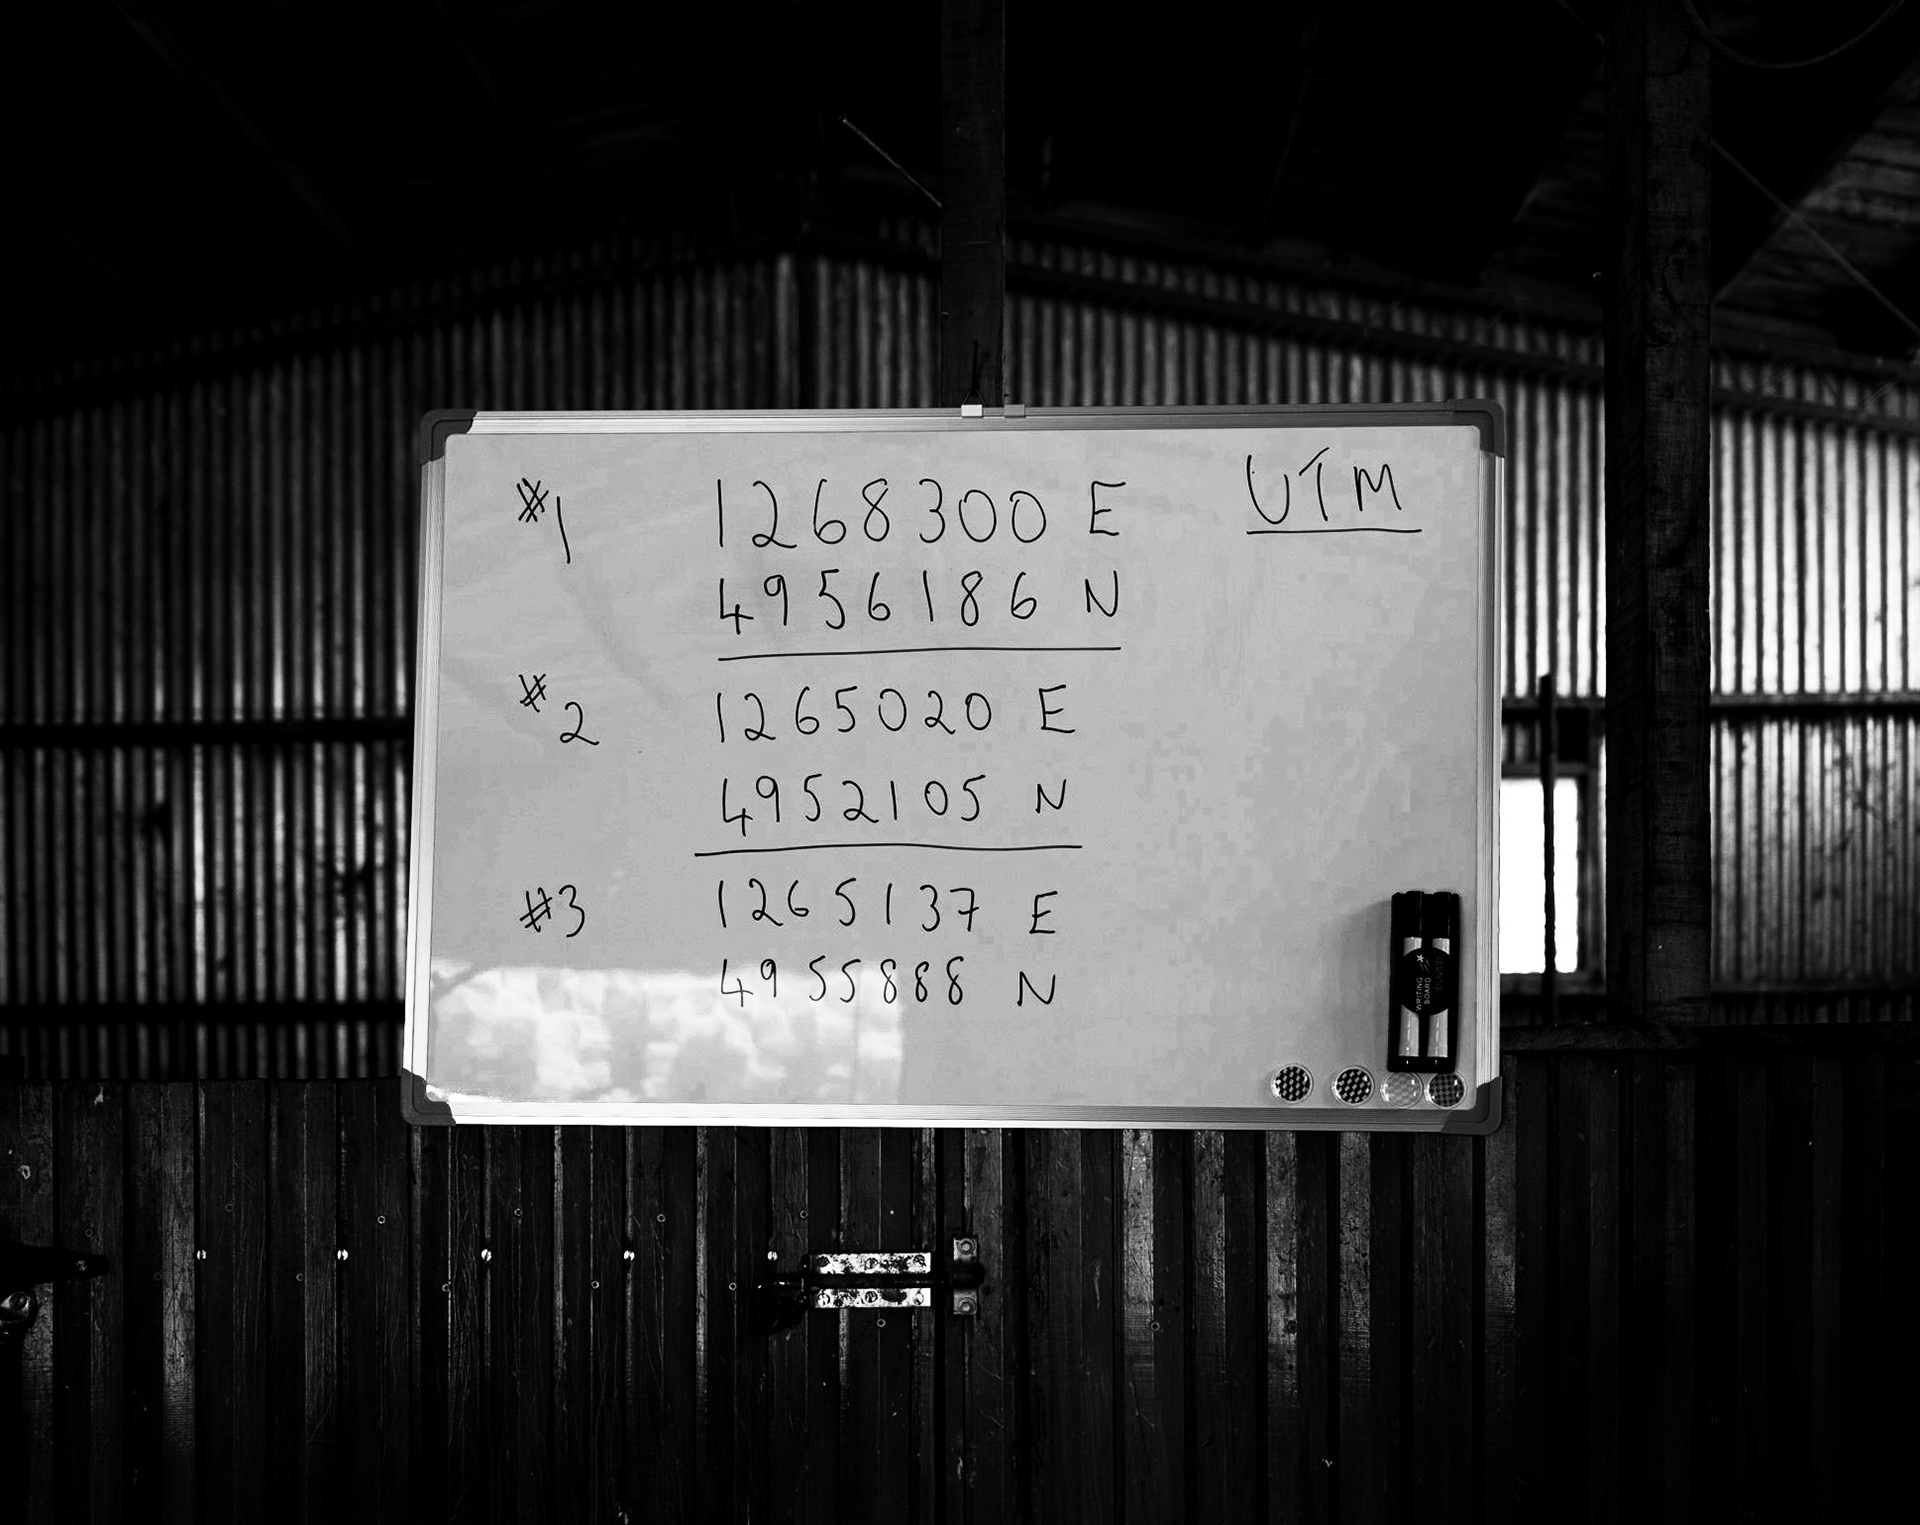 UTM
#1 1268300 E
4956186 N
#2 1265020 E
4952105 N
#3 1265137 E
4955888 N
WRITING
BOARD